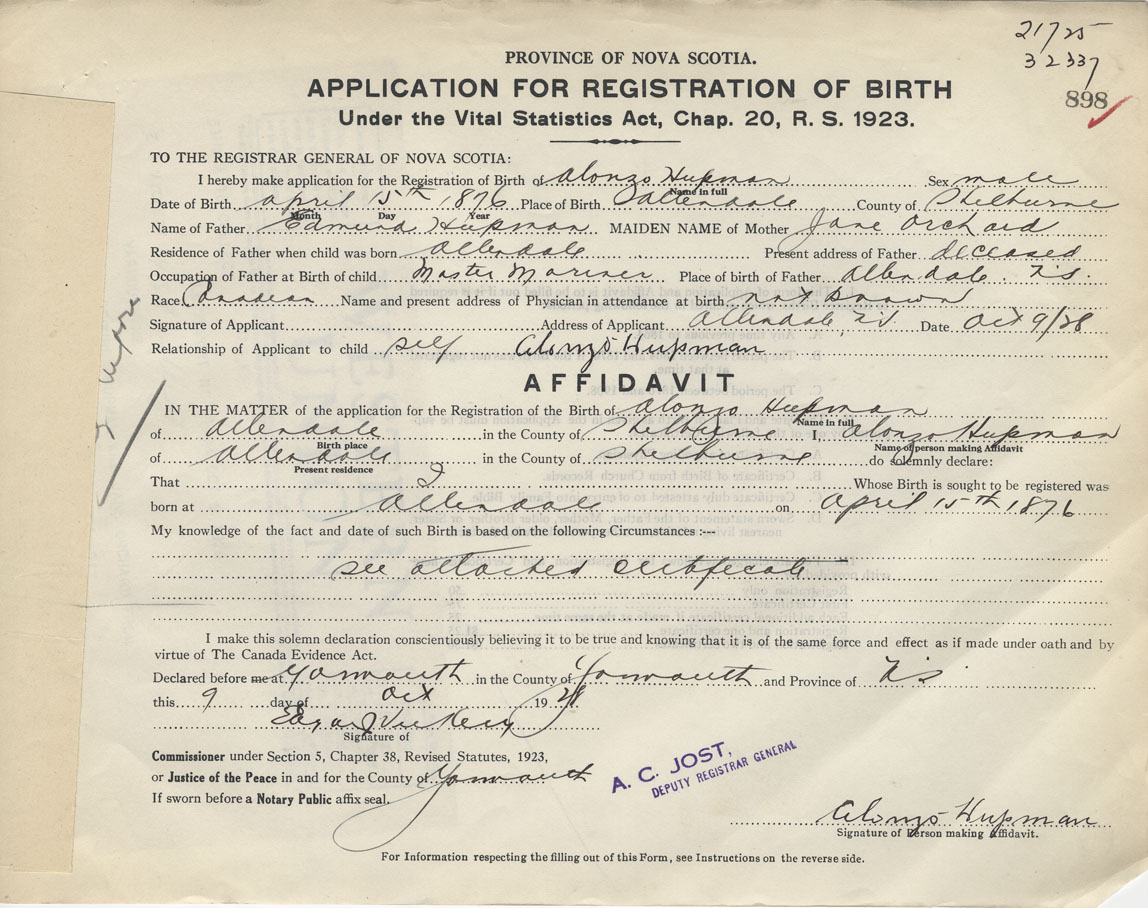 21725
32337
898
PROVINCE OF NOVA SCOTIA.
APPLICATION FOR REGISTRATION OF BIRTH
Under the Vital Statistics Act, Chap. 20, R. S. 1923.
TO THE REGISTRAR GENERAL OF NOVA SCOTIA:
I hereby make application for the Registration of Birth of Alonzo Hupman Sex male
Name in full
Date of Birth april 15th 1876 Place of Birth allendale County of Shelburne
Month Day Year
Name of Father Edmund Hupman MAIDEN NAME of Mother Jane Orchard
Residence of Father when child was born allendale Present address of Father deceased
Occupation of Father at Birth of child Master Mariner Place of birth of Father allendale N.S.
Race Canadean Name and present address of Physician in attendance at birth not known
Signature of Applicant Address of Applicant allendale, N.S. Date Oct 9/28
Relationship of Applicant to child self Alonzo Hupman
AFFIDAVIT
IN THE MATTER of the application for the Registration of the Birth of Alonzo Hupman
Name in full
of allendale in the County of Shelburne I, Alonzo Hupman
Birth place Name of person making Affidavit
of allendale in the County of Shelburne do solemnly declare:
Present residence
That I Whose Birth is sought to be registered was
born at allendale on april 15th 1876
My knowledge of the fact and date of such Birth is based on the following Circumstances :—
see attached certifecate
I make this solemn declaration conscientiously believing it to be true and knowing that it is of the same force and effect as if made under oath and by
virtue of The Canada Evidence Act.
Declared before me at Yarmouth in the County of Yarmouth and Province of N.S
this 9 day of Oct 1928
Edgar Vickery
Signature of
Commissioner under Section 5, Chapter 38, Revised Statutes, 1923,
or Justice of the Peace in and for the County of Yarmouth
If sworn before a Notary Public affix seal.
A. C. JOST,
DEPUTY REGISTRAR GENERAL
Alonzo Hupman
Signature of Person making Affidavit.
For Information respecting the filling out of this Form, see Instructions on the reverse side.